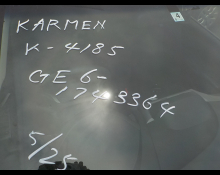 KARMEN
K-4185
GE 6-
1743364
5/25